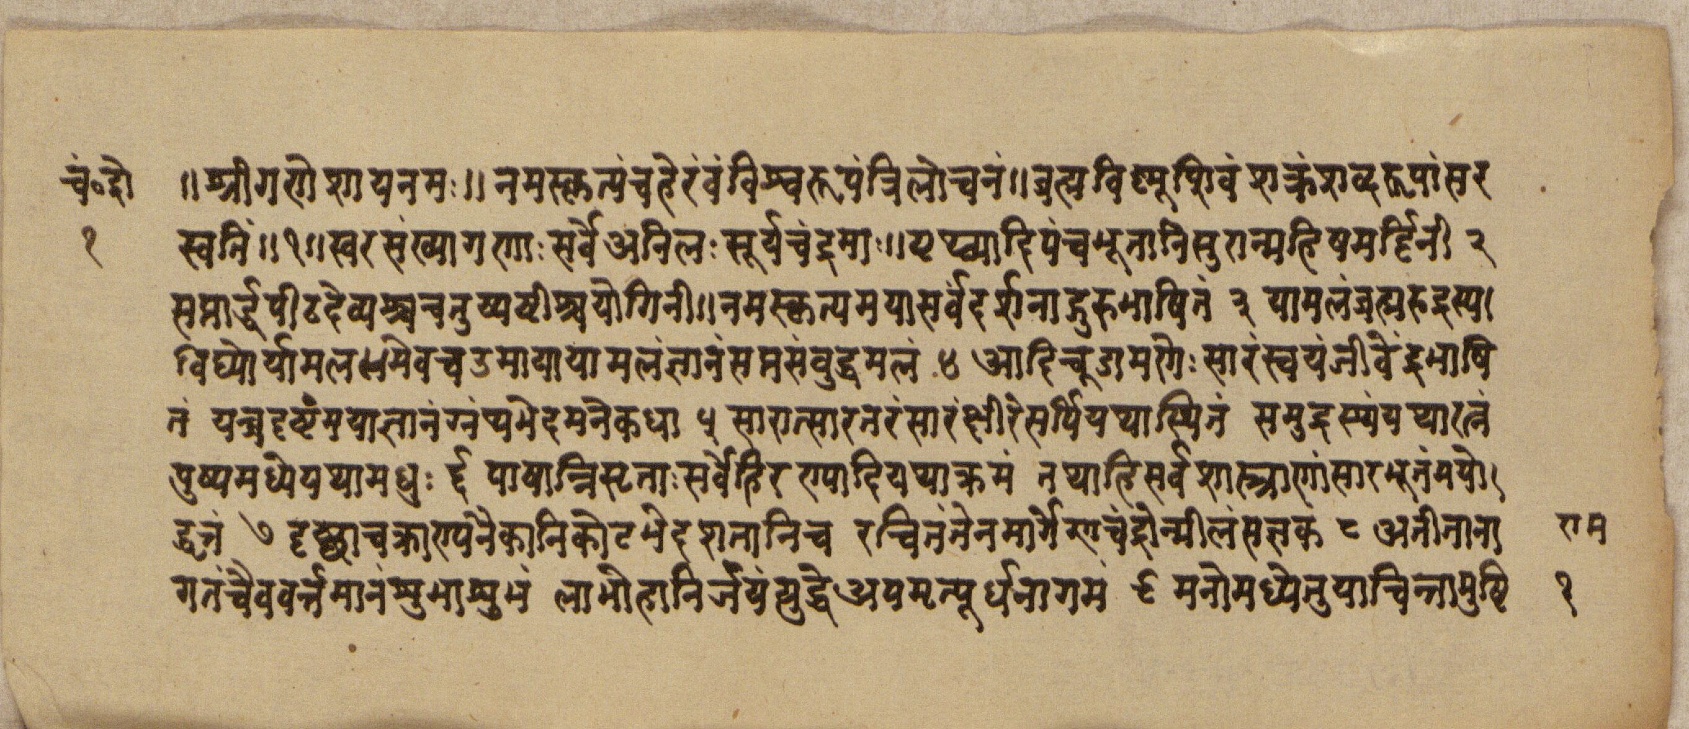 चं॰द्रो ॥श्रीगणेशायनमः॥ नमस्कृत्यंचहेरंवंविश्वरूपंत्रिलोचनं॥ब्रह्मविष्णूशिवंशक्रंशब्दरूपांसर
१ स्वतिं॥१॥स्वरसंख्यागणाःसर्वेअनिलःसूर्यचंद्रमाः॥पृथ्व्यादिपंचभूतानिसुरान्महिषमर्दिनी २
सप्तार्द्धपीठदेव्यश्चचतुष्यष्टीश्चयोगिनी॥नमस्कृत्यमयासर्वेदर्शनाद्गुरुभाषितं ३ यामलंब्रह्मरुद्रस्य।
विष्णोर्यामलधमेवच उमायायामलंज्ञानंसप्तसंवुद्धमलं ४ आदिचूडामणेःसारंस्वयंजीवेंद्रभाषि
तं यन्नदृष्टंमयाज्ञानंग्नंथभेदमनेकधा ५ सारात्सारतरंसारंक्षीरेसर्पिर्यथास्थितं समुद्रस्यंयथारत्नं
पुष्यमध्येयथामधुः ६ पाषान्निसृताःसर्वेहिरण्यादियथाक्रमं तथाहिसर्वशास्त्राणांसारभूतंमयो।
द्धृतं ७ दृष्ट्वाचक्राण्यनेकानिकोटभेदशतानिच रचितंतेनमार्गेणचंद्रोन्मीलंसज्ञकं ८ अतीतानां राम
गतंचैववर्त्तमानंशुभाशुभं लाभोहानिर्जयंयुद्धेअपमृत्यूर्धनागमं ९ मनोमध्येतुयाचिन्तामुष्टि १